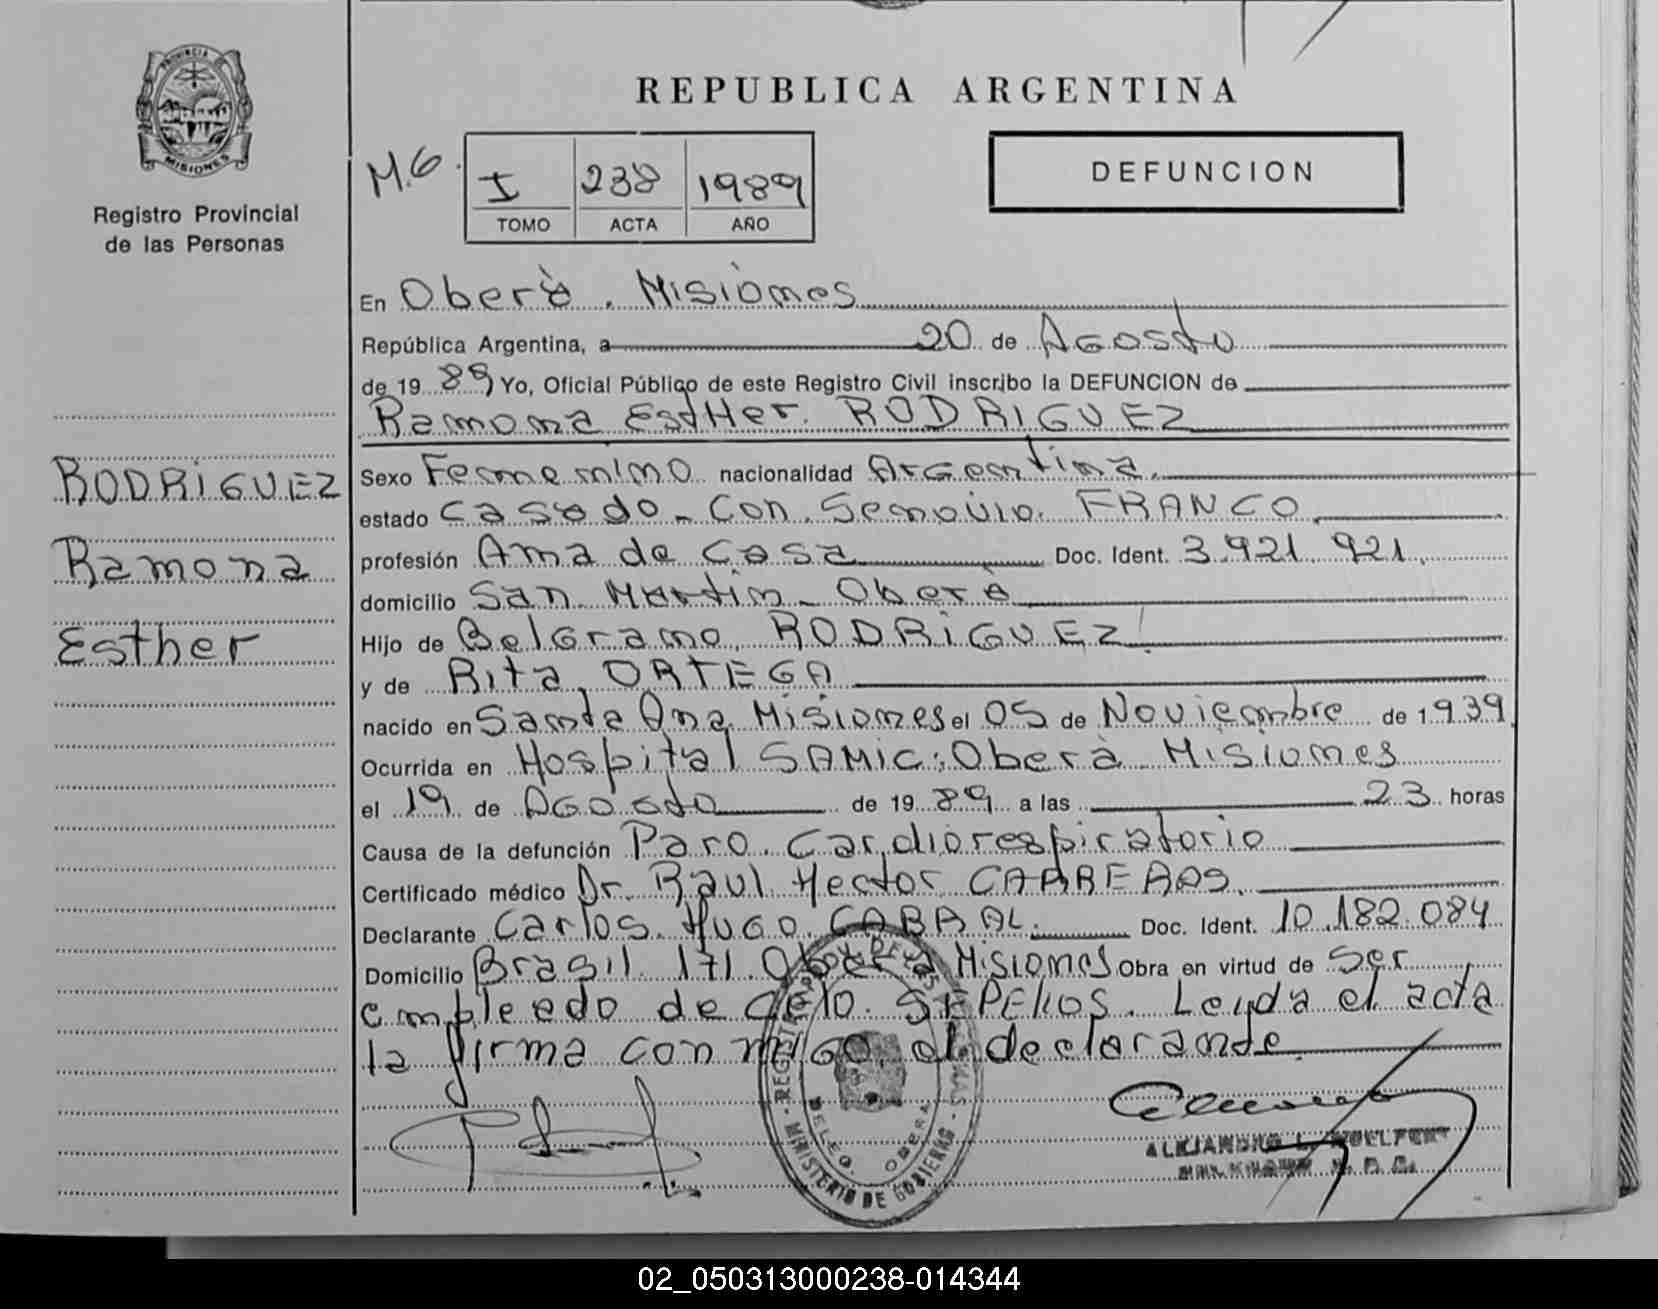 PROVINCIA DE
MISIONES
Registro Provincial
de las Personas
REPUBLICA ARGENTINA
M.G.
I 238 1989
TOMO ACTA AÑO
DEFUNCION
En Oberà. Misiones
República Argentina, a 20 de Agosto
de 19 89 Yo, Oficial Público de este Registro Civil inscribo la DEFUNCION de
Ramona Esther. RODRIGUEZ
RODRIGUEZ
Ramona
Esther
Sexo Femenino nacionalidad Argentina.
estado casado - Con. Senovio. FRANCO.
profesión Ama de Casa Doc. Ident. 3.921.921.
domicilio San Martin - Oberà
Hijo de Belgrano, RODRIGUEZ
y de Rita, ORTEGA
nacido en Santa Ana Misiones el 05 de Noviembre de 1939
Ocurrida en Hospital SAMIC; Oberà Misiones
el 19 de Agosto de 1989 a las 23 horas
Causa de la defunción Paro. Cardiorespiratorio
Certificado médico Dr. Raul Hector
Declarante Carlos. Hugo. CABRAL. Doc. Ident. 10.182.084
Domicilio Brasil 171. Oberà Misiones Obra en virtud de ser
empleado de SEPELIOS. Leyda el acta
la firma conmigo. el declarande.
MINISTERIO DE GOBIERNO
DELEG. OBERA
02_050313000238-014344